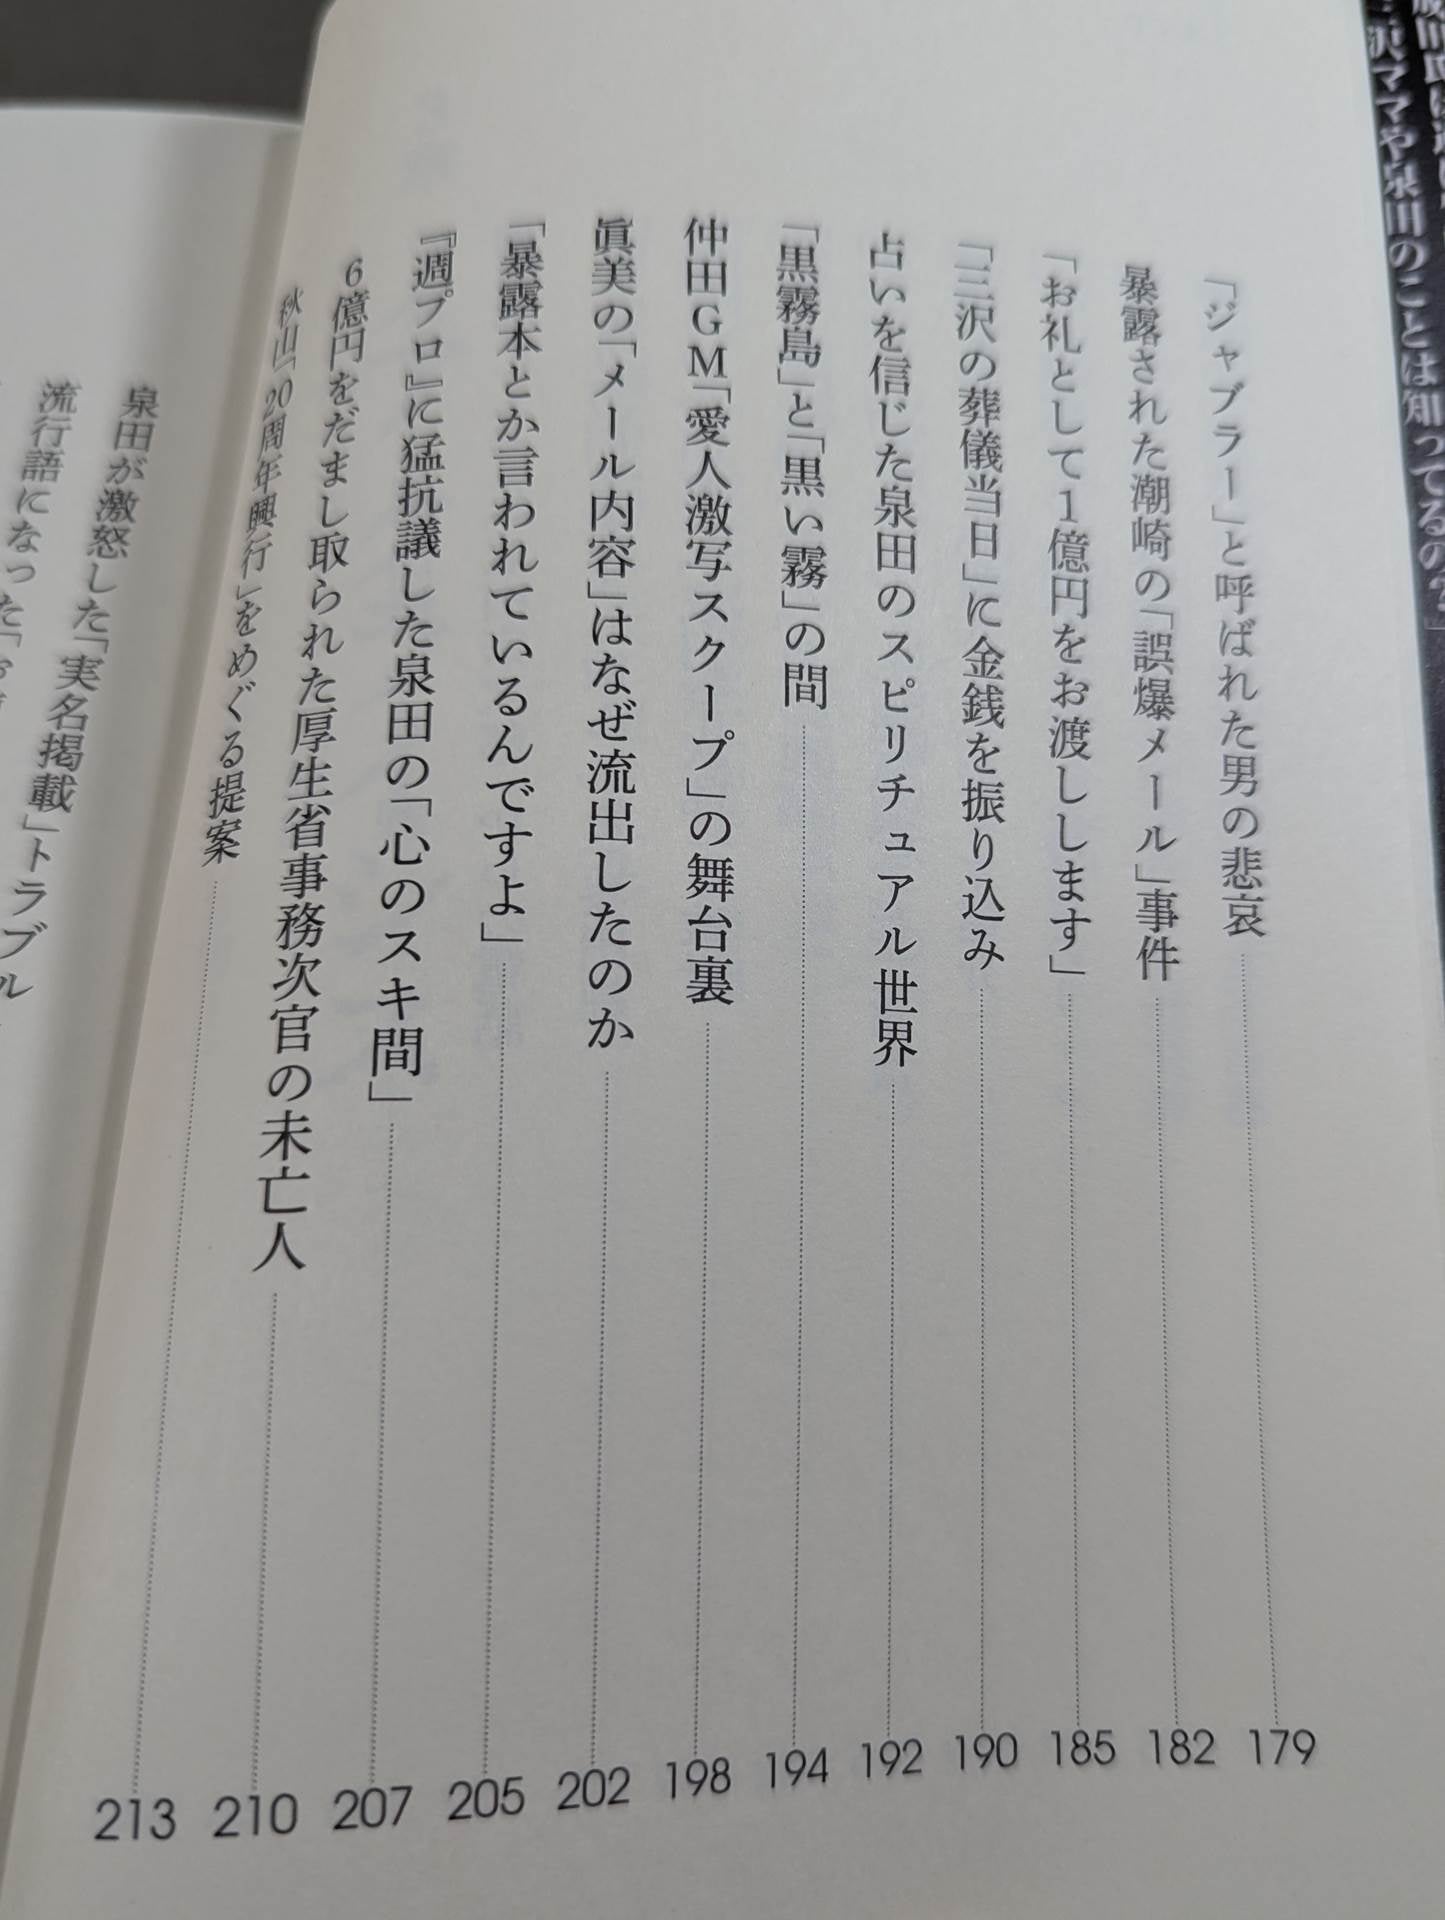 沢ママや泉田のことは知ってるの？」
「ジャブラー」と呼ばれた男の悲哀 179
暴露された潮崎の「誤爆メール」事件 182
「お礼として1億円をお渡しします」 185
「三沢の葬儀当日」に金銭を振り込み 190
占いを信じた泉田のスピリチュアル世界 192
「黒霧島」と「黒い霧」の間 194
仲田GM「愛人激写スクープ」の舞台裏 198
眞美の「メール内容」はなぜ流出したのか 202
「暴露本とか言われているんですよ」 205
『週プロ』に猛抗議した泉田の「心のスキ間」 207
6億円をだまし取られた厚生省事務次官の未亡人 210
秋山「20周年興行」をめぐる提案 213
泉田が激怒した「実名掲載」トラブル
流行語になった「お